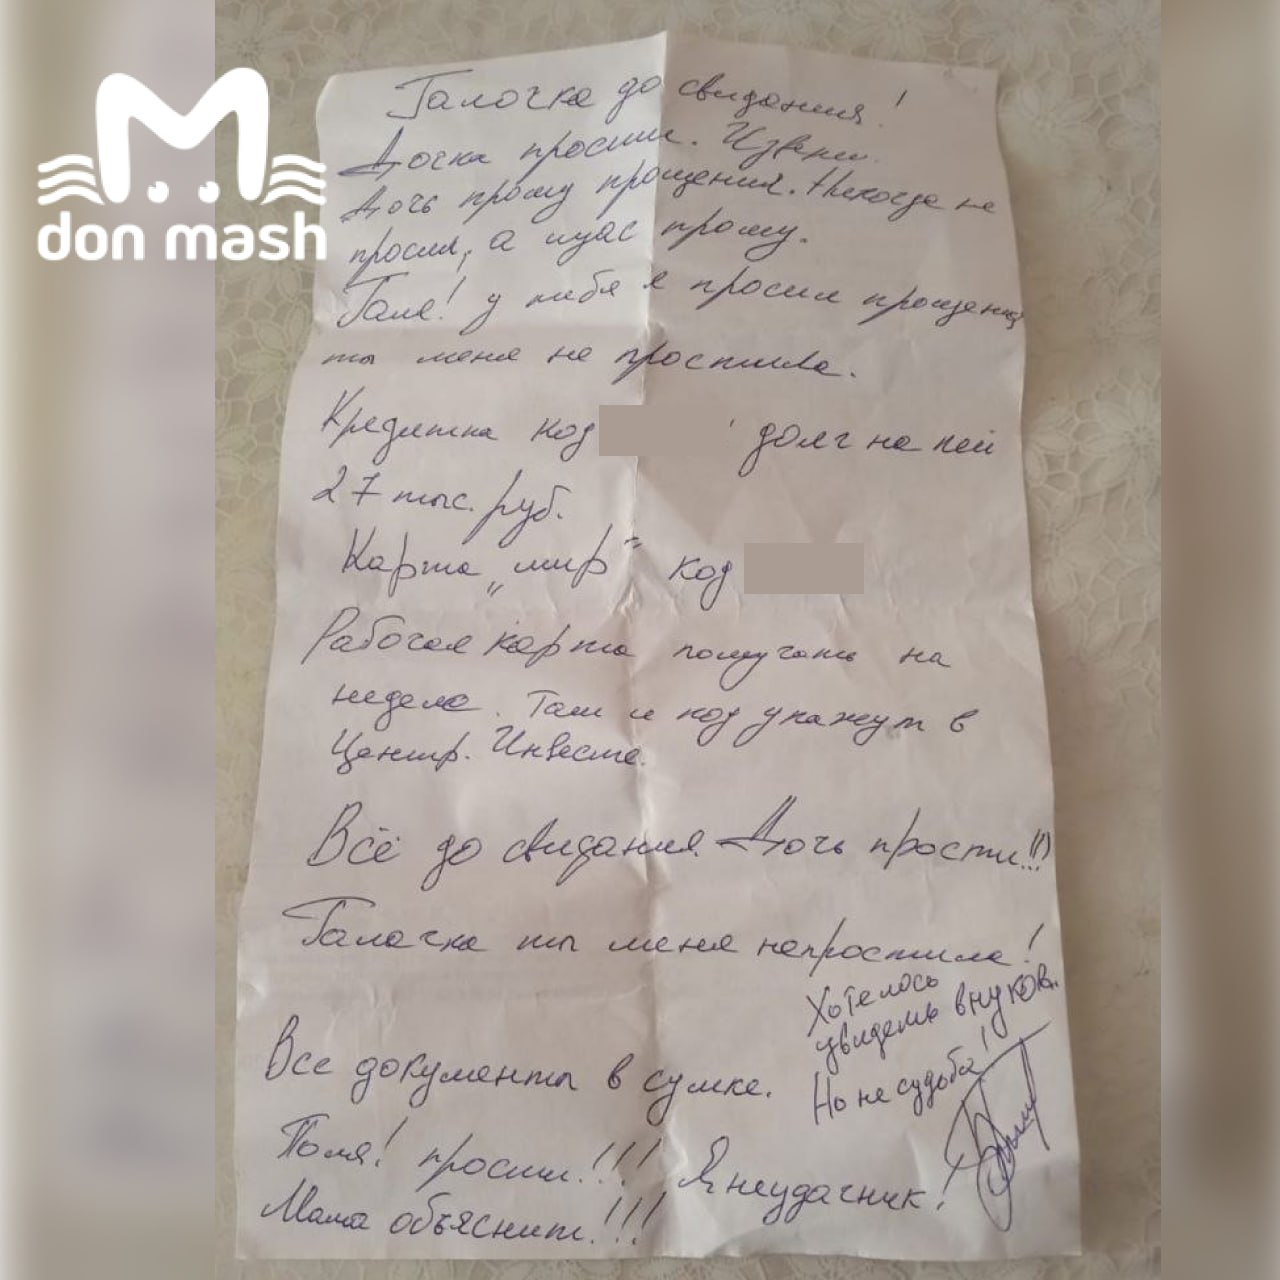 don mash
Галочка до свидания!
Дочка прости. Извени.
Дочь прошу прощения. Никогда не
просил, а щас прошу.
Галя! у тебя я просил прощения
ты меня не простила.
Кредитка код долг на ней
27 тыс. руб.
Карта "мир" код
Рабочая карта получать на
неделе. Там и код укажут в
Центр. Инвесте.
Всё до свидания. Дочь прости!!!)
Галочка ты меня непростила!
Хотелось
увидеть внуков.
Но не судьба!
Все документы в сумке.
Поля! прости!!! Я неудачник!
Мама объяснит!!!